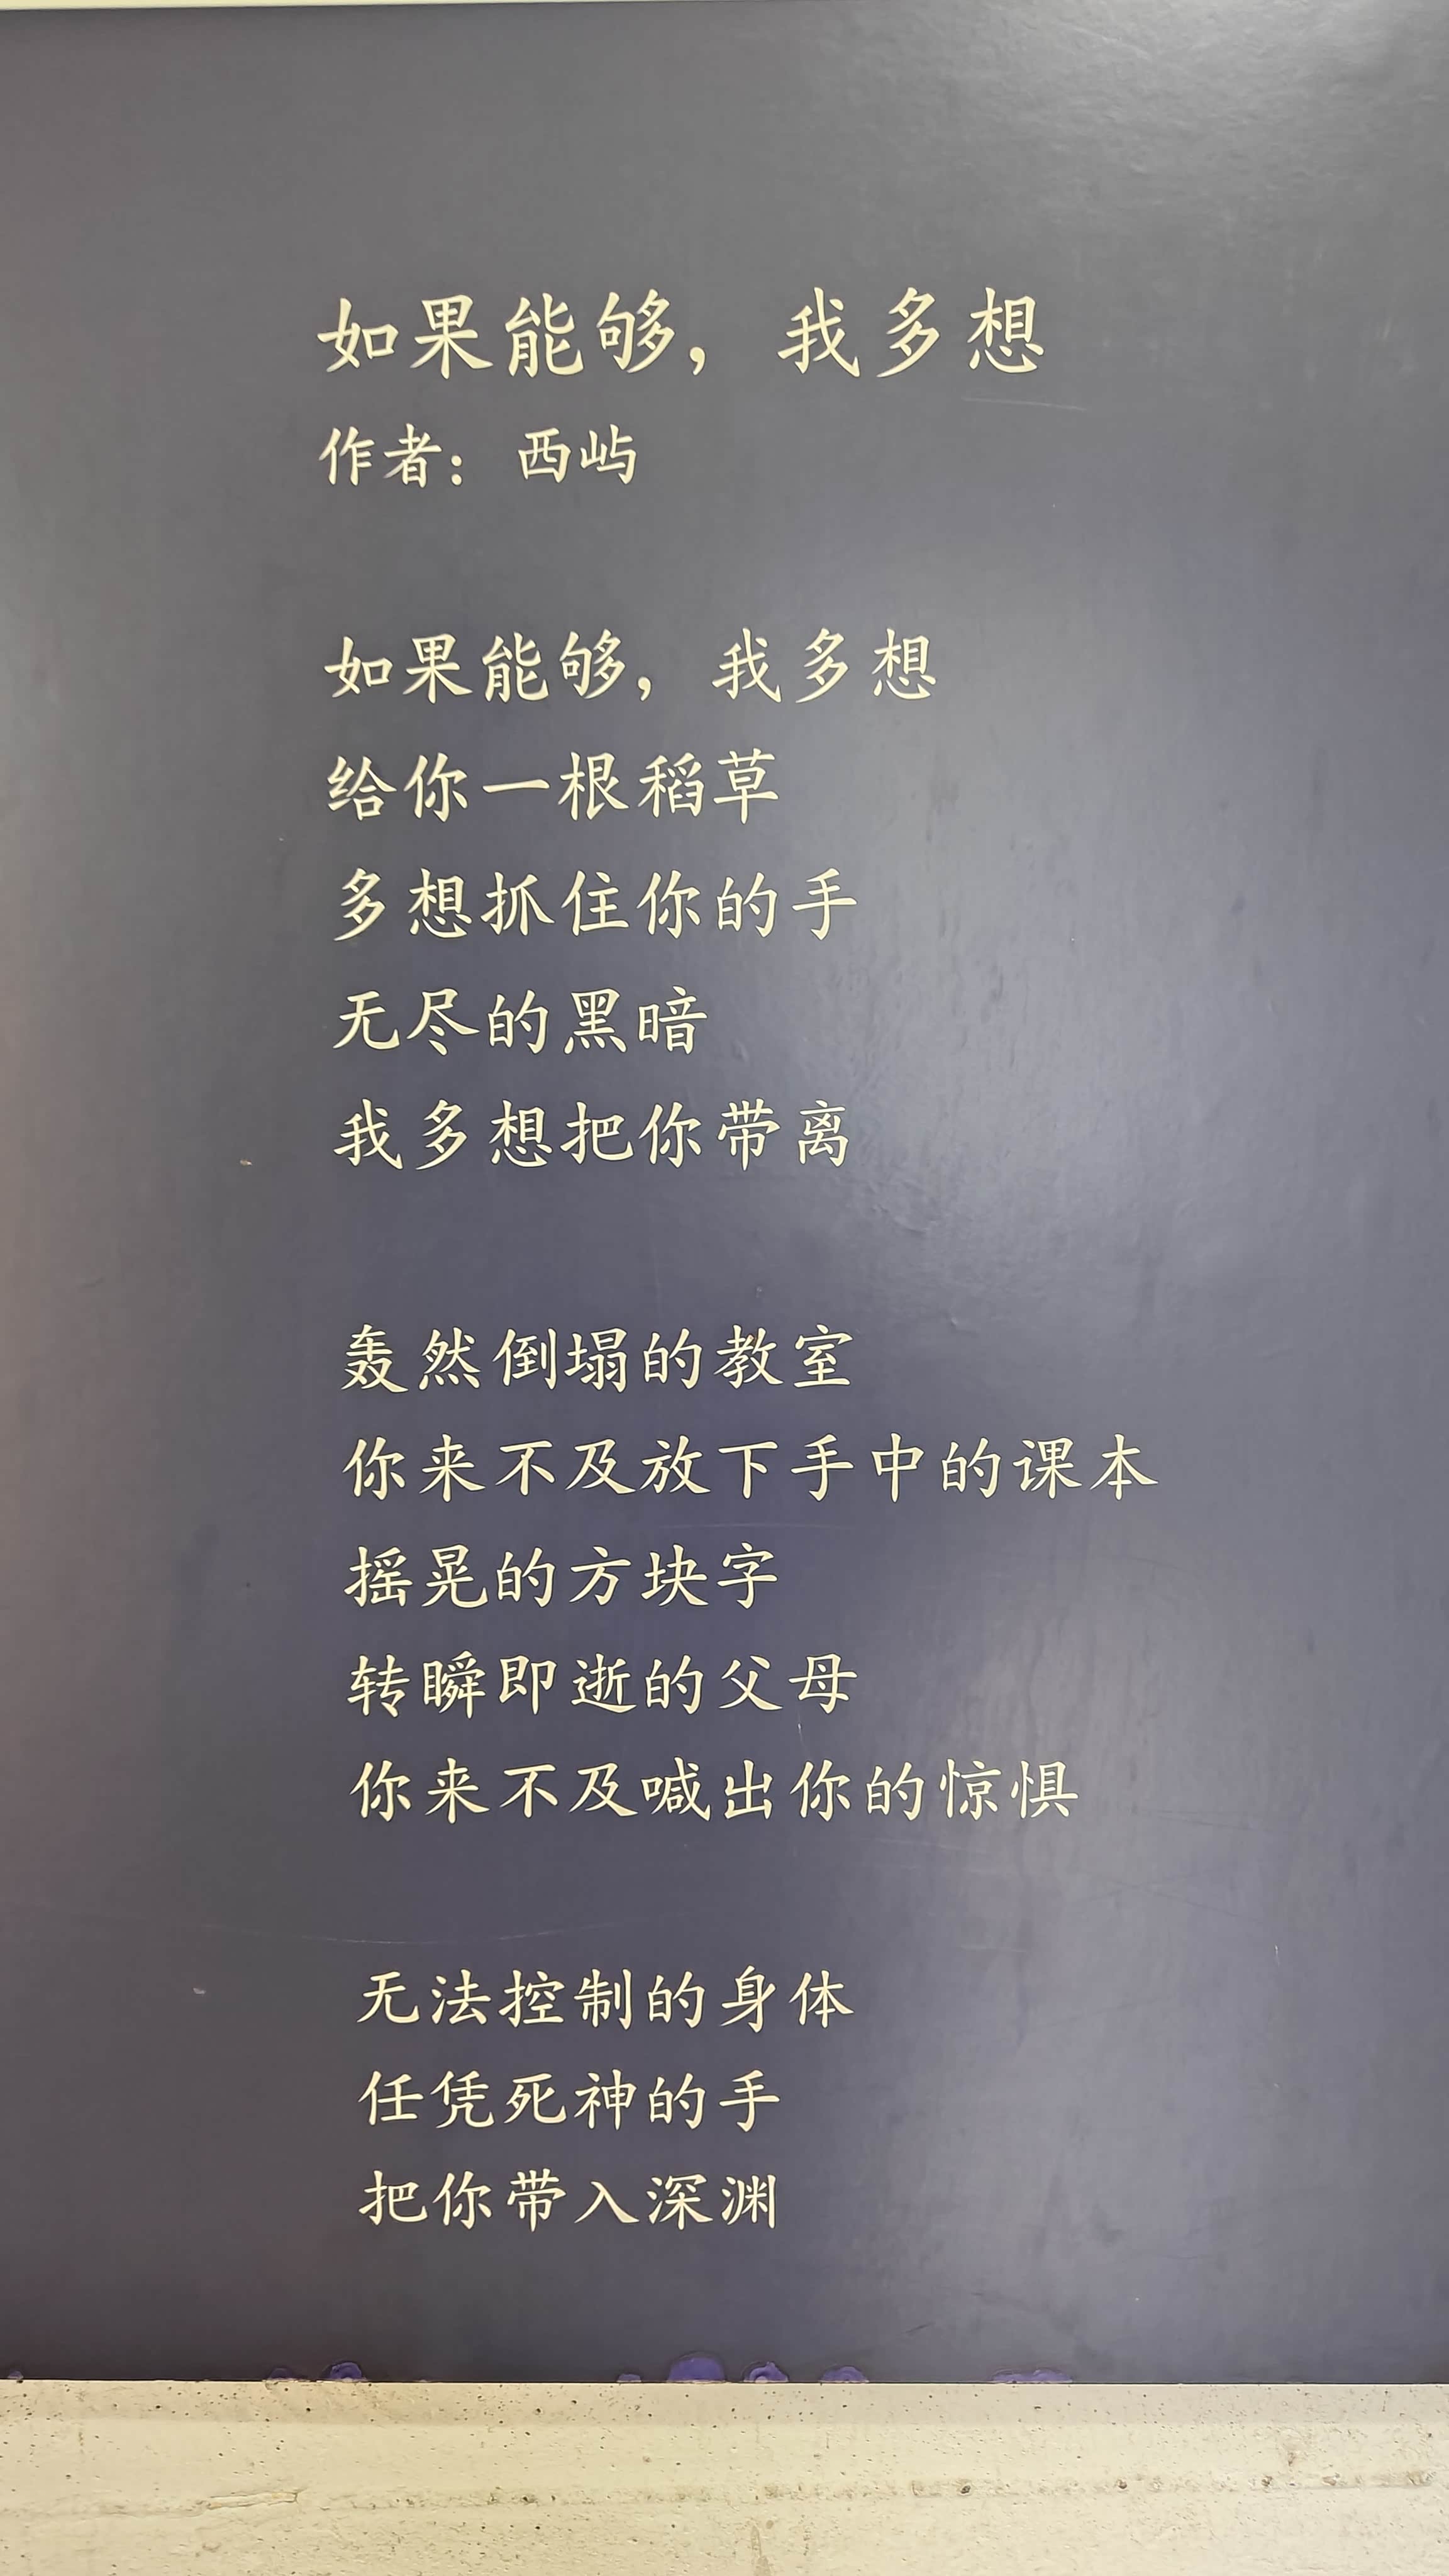 如果能够，我多想
作者：西屿
如果能够，我多想
给你一根稻草
多想抓住你的手
无尽的黑暗
我多想把你带离
轰然倒塌的教室
你来不及放下手中的课本
摇晃的方块字
转瞬即逝的父母
你来不及喊出你的惊惧
无法控制的身体
任凭死神的手
把你带入深渊